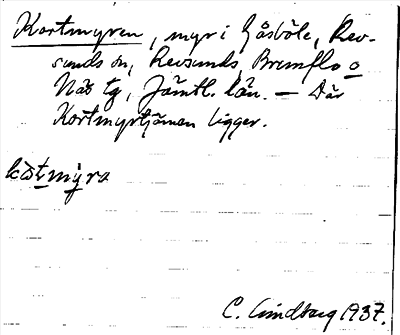 Kortmyren, myr i Gåsböle, Rev-
sunds sn, Revsunds, Brunflo o
Näs tg, Jämtl. län. — Där
Kortmyrtjärnen ligger.
kòtmy̆ra
C. Lindberg 1937.